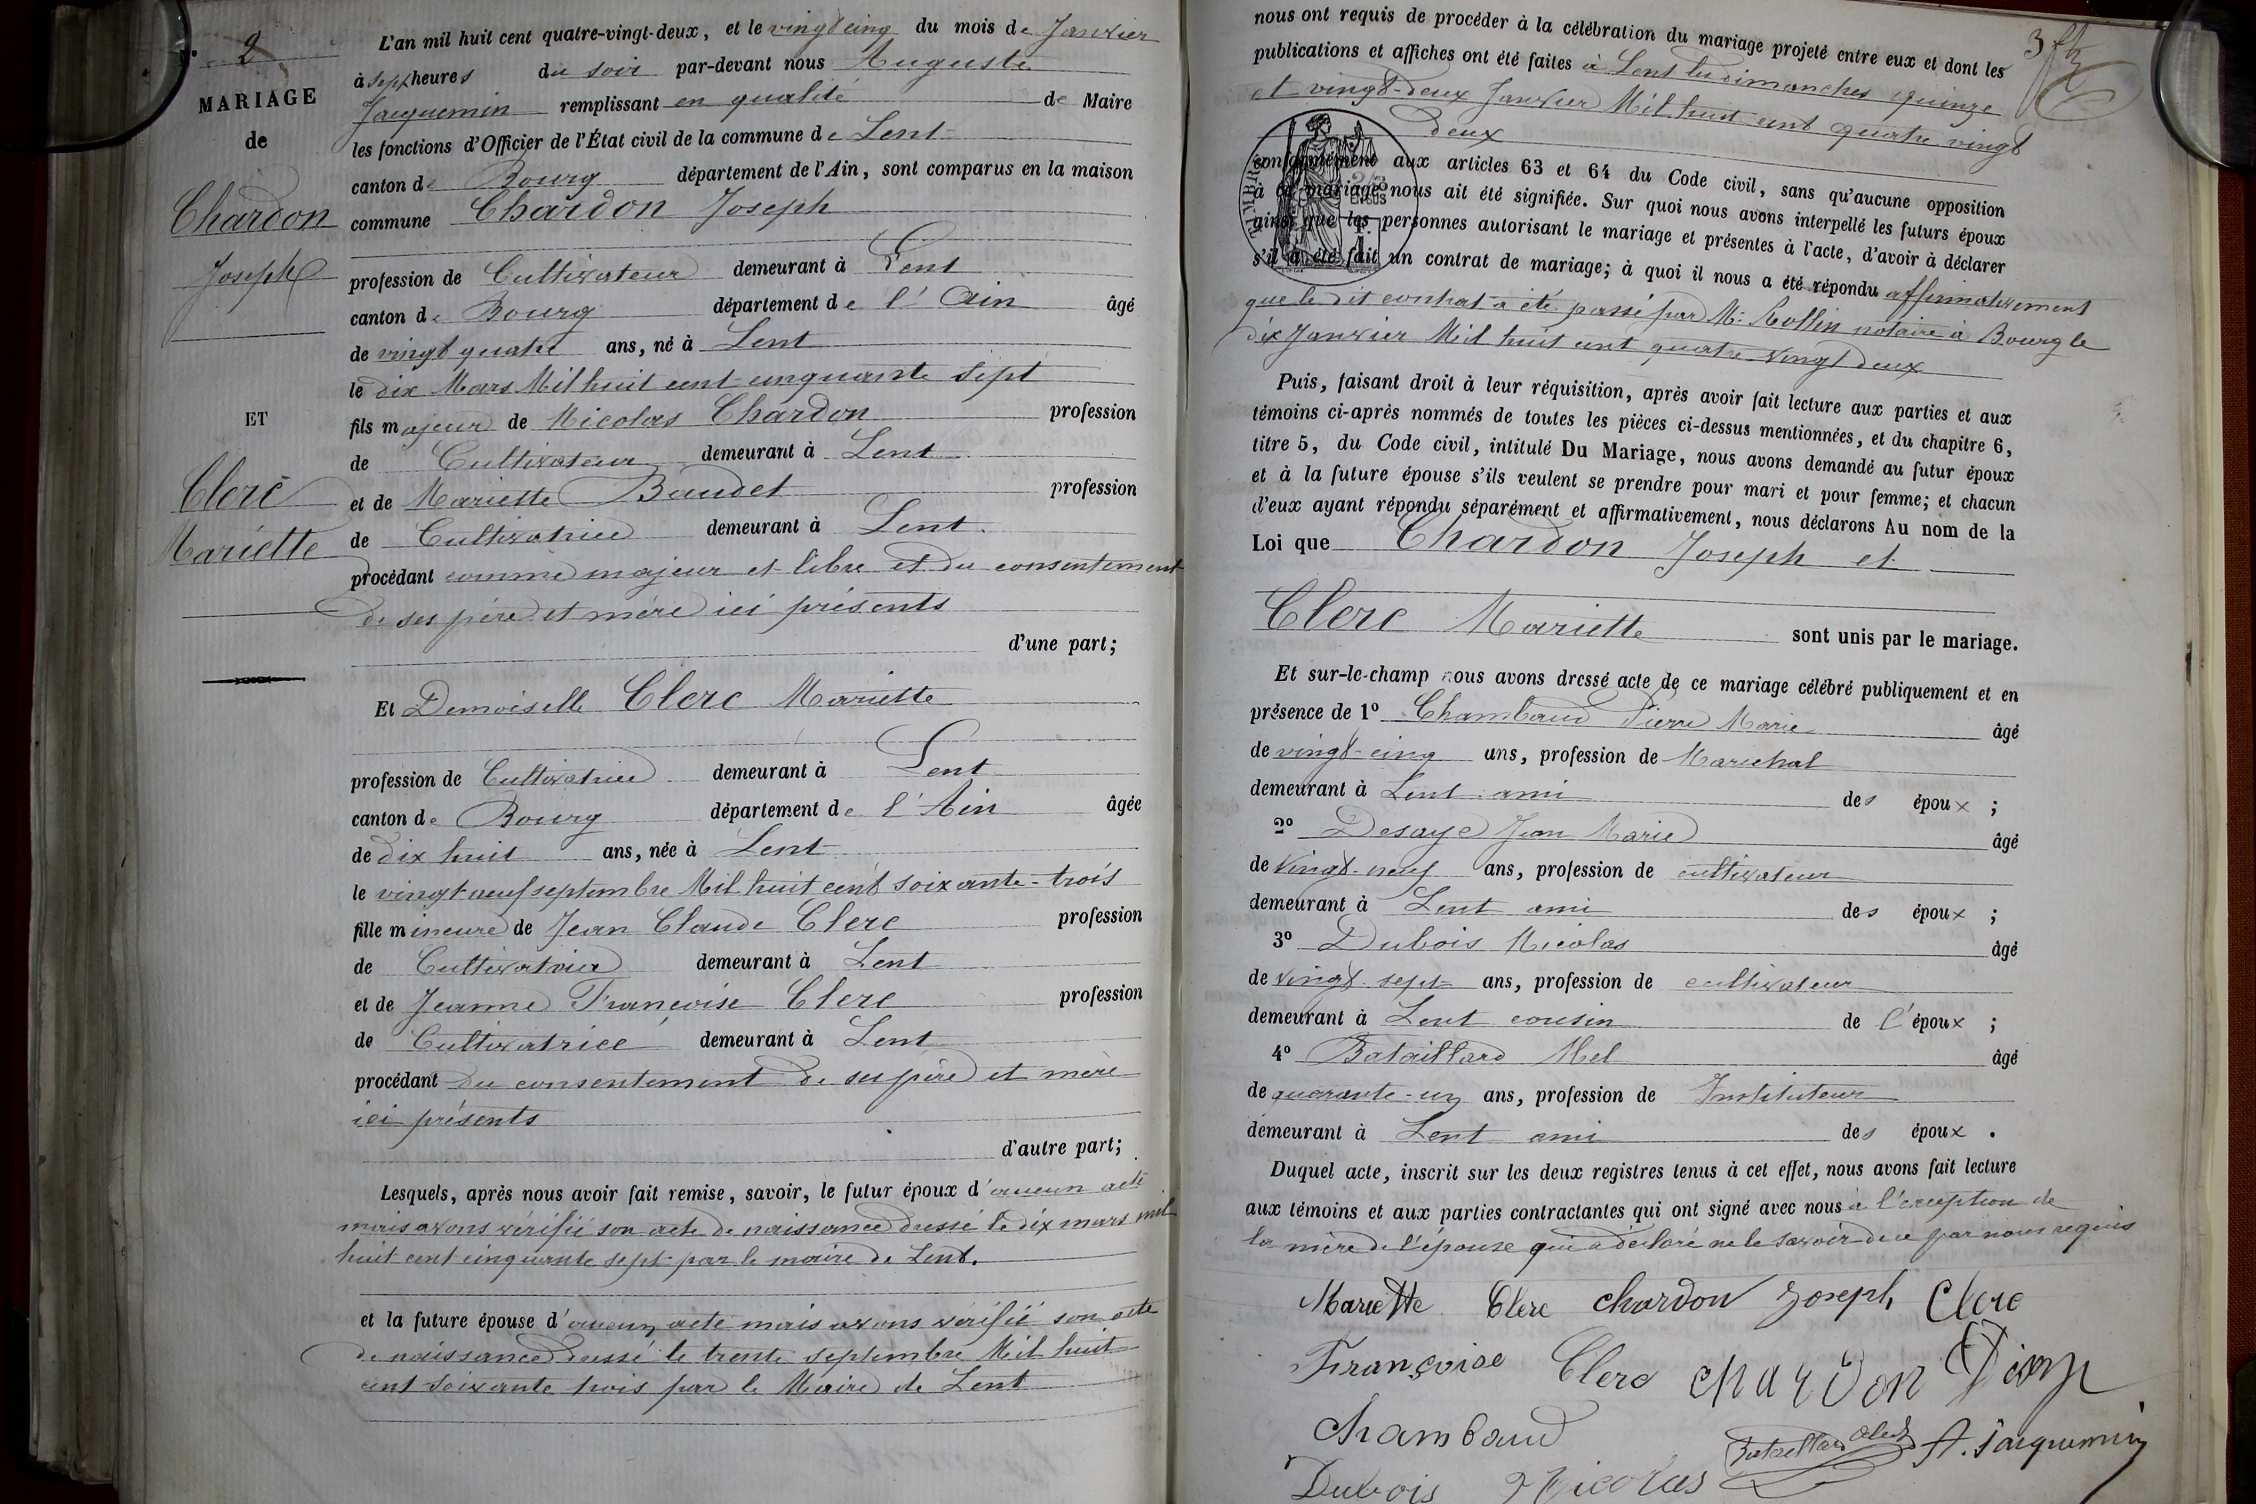 2
MARIAGE
de
Chardon
Joseph
ET
Clerc
Mariette
L'an mil huit cent quatre-vingt-deux, et le vingt cinq du mois de Janvier
à sept heures du soir par-devant nous Auguste
Jacquemin remplissant en qualité de Maire
les fonctions d'Officier de l'État civil de la commune de Lent
canton de Bourg département de l'Ain, sont comparus en la maison
commune Chardon Joseph
profession de Cultivateur demeurant à Lent
canton de Bourg département de l'Ain âgé
de vingt quatre ans, né à Lent
le dix Mars Mil huit cent cinquante sept
fils majeur de Nicolas Chardon profession
de Cultivateur demeurant à Lent
et de Mariette Baudet profession
de Cultivatrice demeurant à Lent
procédant comme majeur et libre et du consentement
de ses père et mère ici présents
d'une part;
Et Demoiselle Clerc Mariette
profession de Cultivatrice demeurant à Lent
canton de Bourg département de l'Ain âgée
de dix huit ans, née à Lent
le vingt neuf septembre Mil huit cent soixante-trois
fille mineure de Jean Claude Clerc profession
de demeurant à Lent
et de Jeanne Françoise Clerc profession
de Cultivatrice demeurant à Lent
procédant du consentement de ses père et mère
ici présents
d'autre part;
Lesquels, après nous avoir fait remise, savoir, le futur époux d'aucun acte
mais avons vérifié son acte de naissance dressé le dix mars mil
huit cent cinquante sept par le maire de Lent.
et la future épouse d'aucun acte mais avons vérifié son acte
de naissance dressé le trente septembre Mil huit
cent soixante trois par le Maire de Lent
3
nous ont requis de procéder à la célébration du mariage projeté entre eux et dont les
publications et affiches ont été faites à Lent les dimanches quinze
et vingt-deux Janvier Mil huit cent quatre vingt
deux
conformément aux articles 63 et 64 du Code civil, sans qu'aucune opposition
à ce mariage nous ait été signifiée. Sur quoi nous avons interpellé les futurs époux
ainsi que les personnes autorisant le mariage et présentes à l'acte, d'avoir à déclarer
s'il a été fait un contrat de mariage; à quoi il nous a été répondu affirmativement
que le dit contrat a été passé par Me Rollin notaire à Bourg le
dix Janvier Mil huit cent quatre vingt deux
Puis, faisant droit à leur réquisition, après avoir fait lecture aux parties et aux
témoins ci-après nommés de toutes les pièces ci-dessus mentionnées, et du chapitre 6,
titre 5, du Code civil, intitulé Du Mariage, nous avons demandé au futur époux
et à la future épouse s'ils veulent se prendre pour mari et pour femme; et chacun
d'eux ayant répondu séparément et affirmativement, nous déclarons Au nom de la
Loi que Chardon Joseph et
Clerc Mariette sont unis par le mariage.
Et sur-le-champ nous avons dressé acte de ce mariage célébré publiquement et en
présence de 1º Chambaud Pierre Marie âgé
de vingt-cinq ans, profession de Maréchal
demeurant à Lent ami des époux ;
2º Desaye Jean Marie âgé
de vingt-neuf ans, profession de cultivateur
demeurant à Lent ami des époux ;
3º Dubois Nicolas âgé
de vingt sept ans, profession de cultivateur
demeurant à Lent cousin de l'époux ;
4º Bataillard âgé
de quarante-un ans, profession de Instituteur
demeurant à Lent ami des époux .
Duquel acte, inscrit sur les deux registres tenus à cet effet, nous avons fait lecture
aux témoins et aux parties contractantes qui ont signé avec nous à l'exception de
la mère de l'épouse qui a déclaré ne le savoir de ce par nous requis
Mariette Clerc chardon Joseph Clerc
Françoise Clerc chardon
Chambaud Bataillard A. Jacquemin
Dubois Nicolas